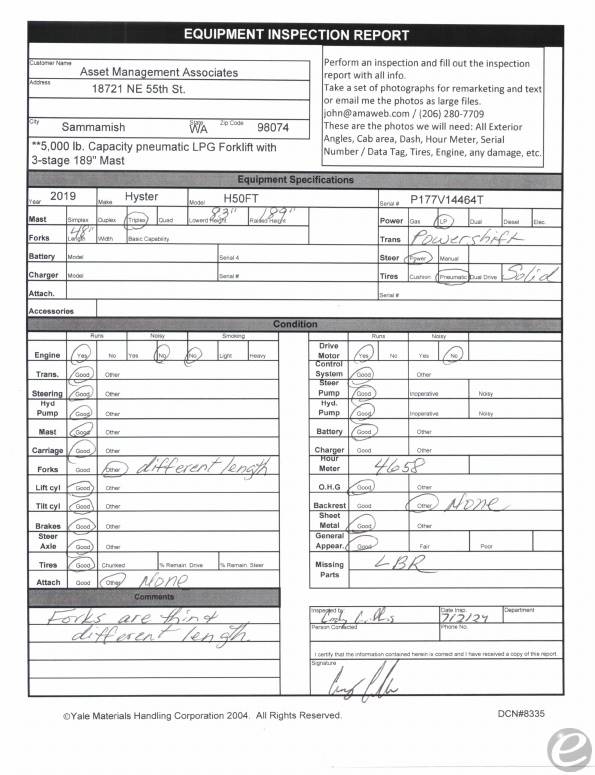 EQUIPMENT INSPECTION REPORT
Customer Name
Asset Management Associates
Address
18721 NE 55th St.
City State Zip Code
Sammamish WA 98074
**5,000 lb. Capacity pneumatic LPG Forklift with
3-stage 189" Mast
Perform an inspection and fill out the inspection
report with all info.
Take a set of photographs for remarketing and text
or email me the photos as large files.
john@amaweb.com / (206) 280-7709
These are the photos we will need: All Exterior
Angles, Cab area, Dash, Hour Meter, Serial
Number / Data Tag, Tires, Engine, any damage, etc.
Equipment Specifications
Year 2019 Make Hyster Model H50FT Serial # P177V14464T
Mast Simplex Duplex Triplex Quad Lowerd Height 83" Raised Height 189" Power Gas LP Dual Diesel Elec.
Forks 48" Length Width Basic Capability Trans Powershift
Battery Model Serial 4 Steer Power Manual
Charger Model Serial # Tires Cushion Pneumatic Dual Drive Solid
Attach. Serial #
Accessories
Condition
Runs Noisy Smoking
Engine Yes No Yes No No Light Heavy
Trans. Good Other
Steering Good Other
Hyd
Pump Good Other
Mast Good Other
Carriage Good Other
Forks Other different length
Lift cyl Good Other
Tilt cyl Good Other
Brakes Good Other
Steer
Axle Good Other
Tires Good Chunked % Remain. Drive % Remain. Steer
Attach Good Other None
Comments
Forks are thin &
different length.
Runs Noisy
Drive
Motor Yes No Yes No
Control
System Good Other
Steer
Pump Good Inoperative Noisy
Hyd.
Pump Good Inoperative Noisy
Battery Good Other
Charger Good Other
Hour
Meter 4658
O.H.G Good Other
Backrest Good Other None
Sheet
Metal Good Other
General
Appear. Good Fair Poor
Missing
Parts LBR
Inspected by Date Insp. Department
7/2/24
Person Contacted Phone No.
I certify that the information contained herein is correct and I have received a copy of this report.
Signature
©Yale Materials Handling Corporation 2004. All Rights Reserved. DCN#8335
e